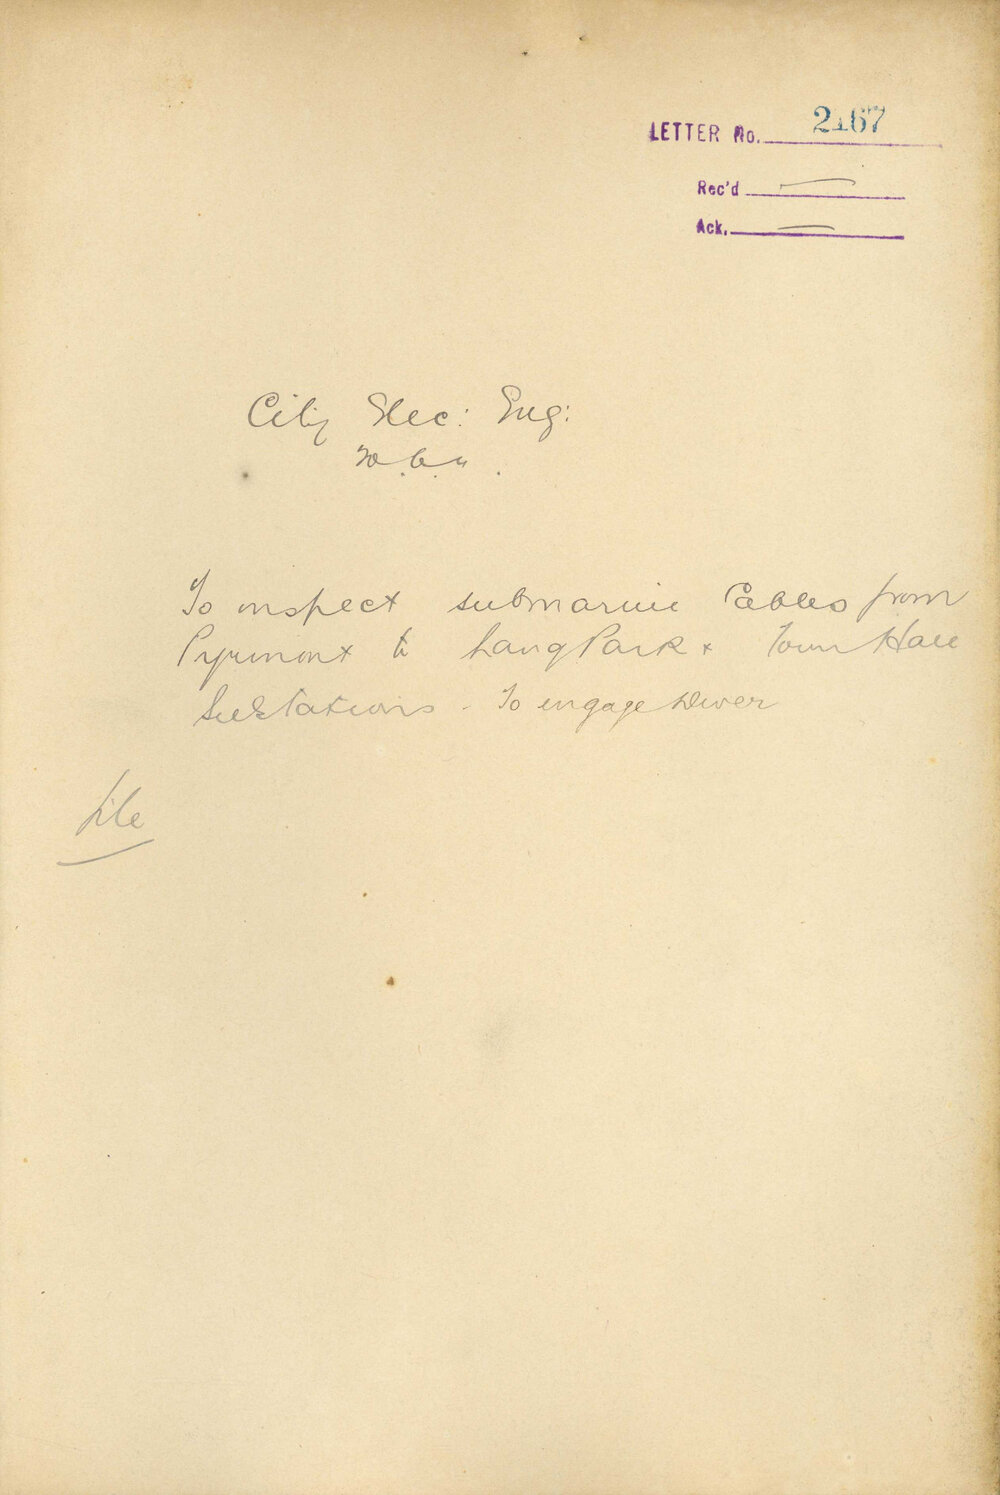 LETTER No. 2467
Rec'd —
Ack. —
City Elec: Eng:
To inspect submarine Cables from
Pyrmont to Lang Park + Town Hall
Substations - To engage Diver
File